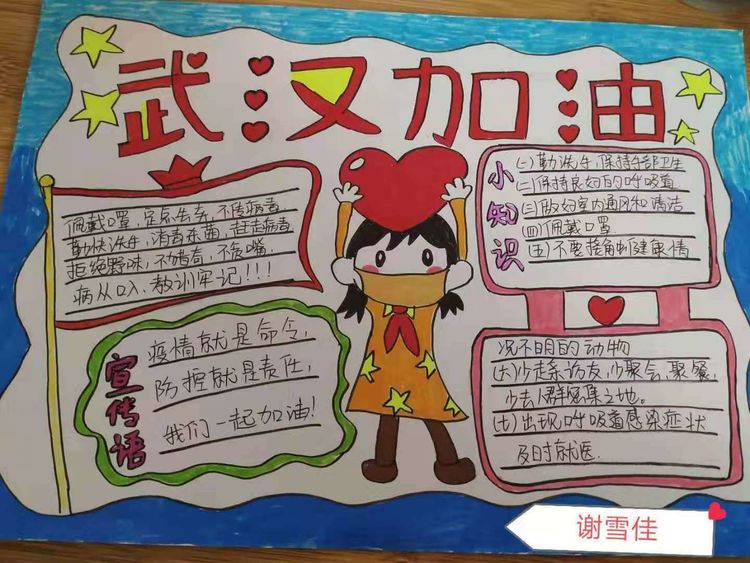 武汉加油
佩戴口罩,定点丢弃,不传病毒
勤快洗手,消毒杀菌,赶走病毒
拒绝野味,不力猎奇,不贪嘴
病从口入,教训牢记!!!
宣传语
疫情就是命令,
防控就是责任,
我们一起加油!
小知识
(一)勤洗手,保持手部卫生
(二)保持良好的呼吸道
(三)做好室内通风和清洁
(四)佩戴口罩
(五)不要接触到健康情
况不明的动物
(六)少走亲访友,少聚会,聚餐,
少去人群密集之地。
(七)出现呼吸道感染症状
及时就医.
谢雪佳